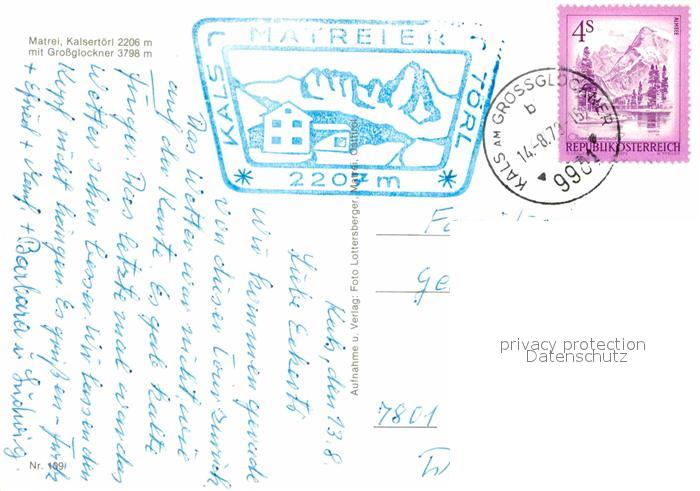 Matrei, Kalsertörl 2206 m
mit Großglockner 3798 m
KALS MATREIER TÖRL
* 2207 m *
KALS AM GROSSGLOCKNER
b
14.-8.79
9981
4S
ALMSEE
REPUBLIK ÖSTERREICH
Kals, den 13. 8.
Liebe Eckerts
Wir kommen gerade
von dieser Tour zurück
Das Wetter war nicht wie
auf der Karte. Es gab kalte
Finger. Das letzte mal war das
Wetter schon besser. Wir lassen den
Kopf nicht hängen. Es grüßen
+ Barbara u. Ludwig
Aufnahme u. Verlag: Foto Lottersberger, Matrei, Osttirol
Fa
Ge
7801
Nr. 109/
privacy protection
Datenschutz